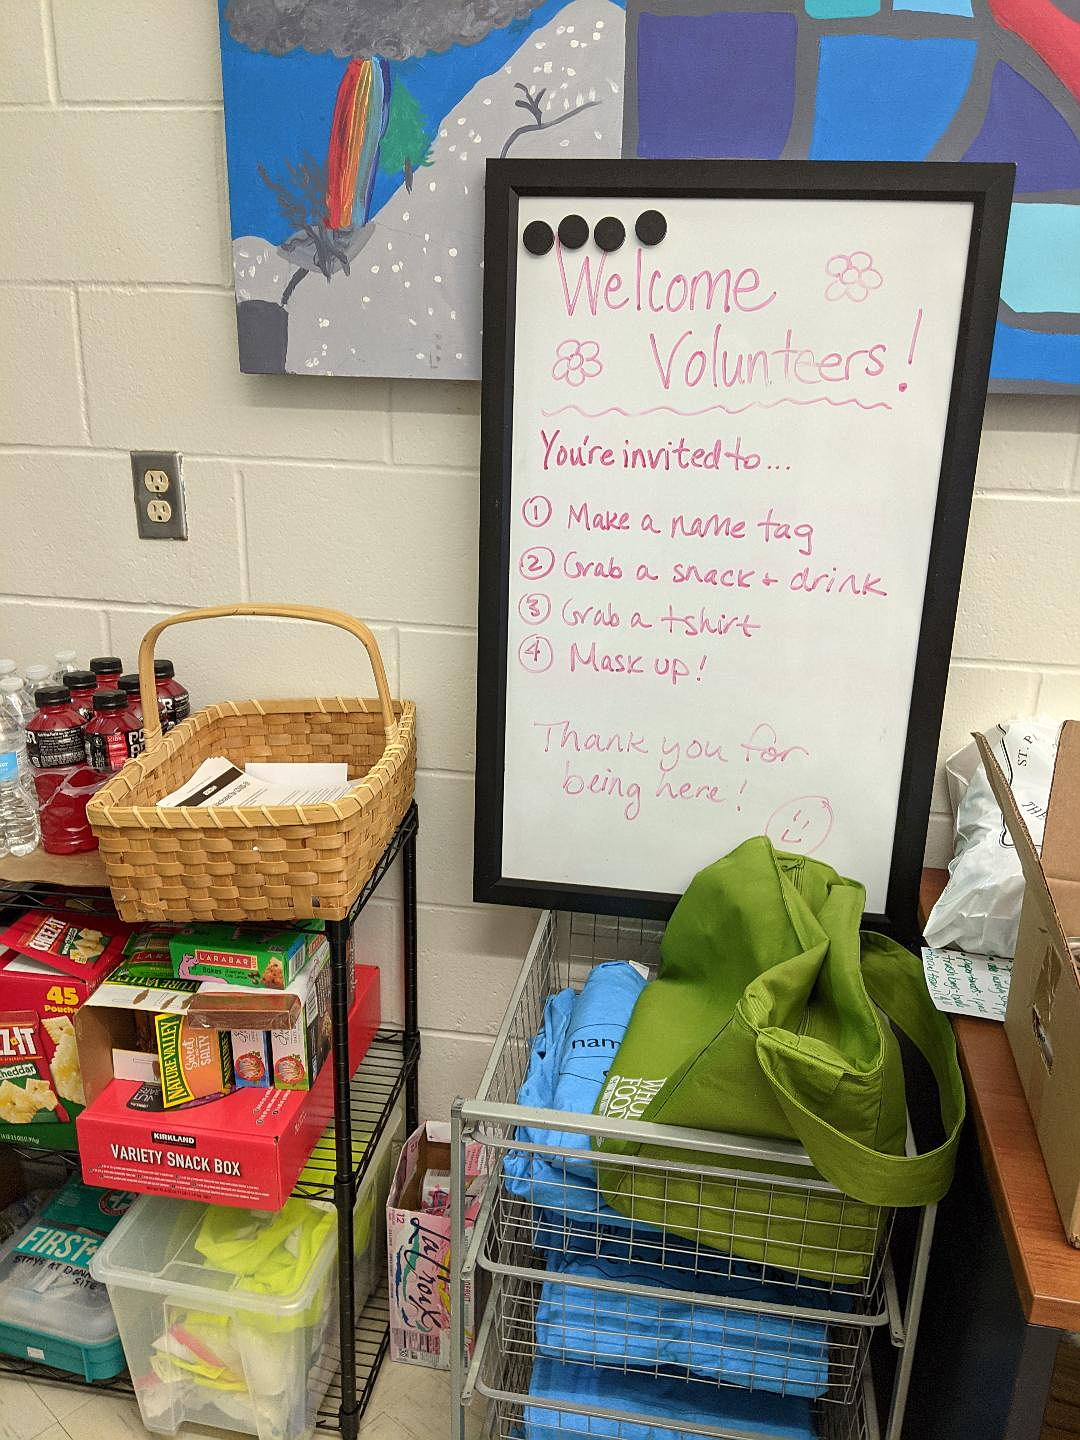 Welcome
Volunteers!
You're invited to...
1 Make a name tag
2 Grab a snack + drink
3 Grab a tshirt
4 Mask up!
Thank you for
being here!
CHEEZ-IT
LÄRABAR
45
Pouches
EZ-IT
Cheddar
NATURE VALLEY
Sweet
SALTY
KIRKLAND
VARIETY SNACK BOX
FIRST
STAYS AT
SITE
12
LaCroix
nam
WHOLE
FOODS
ST. P